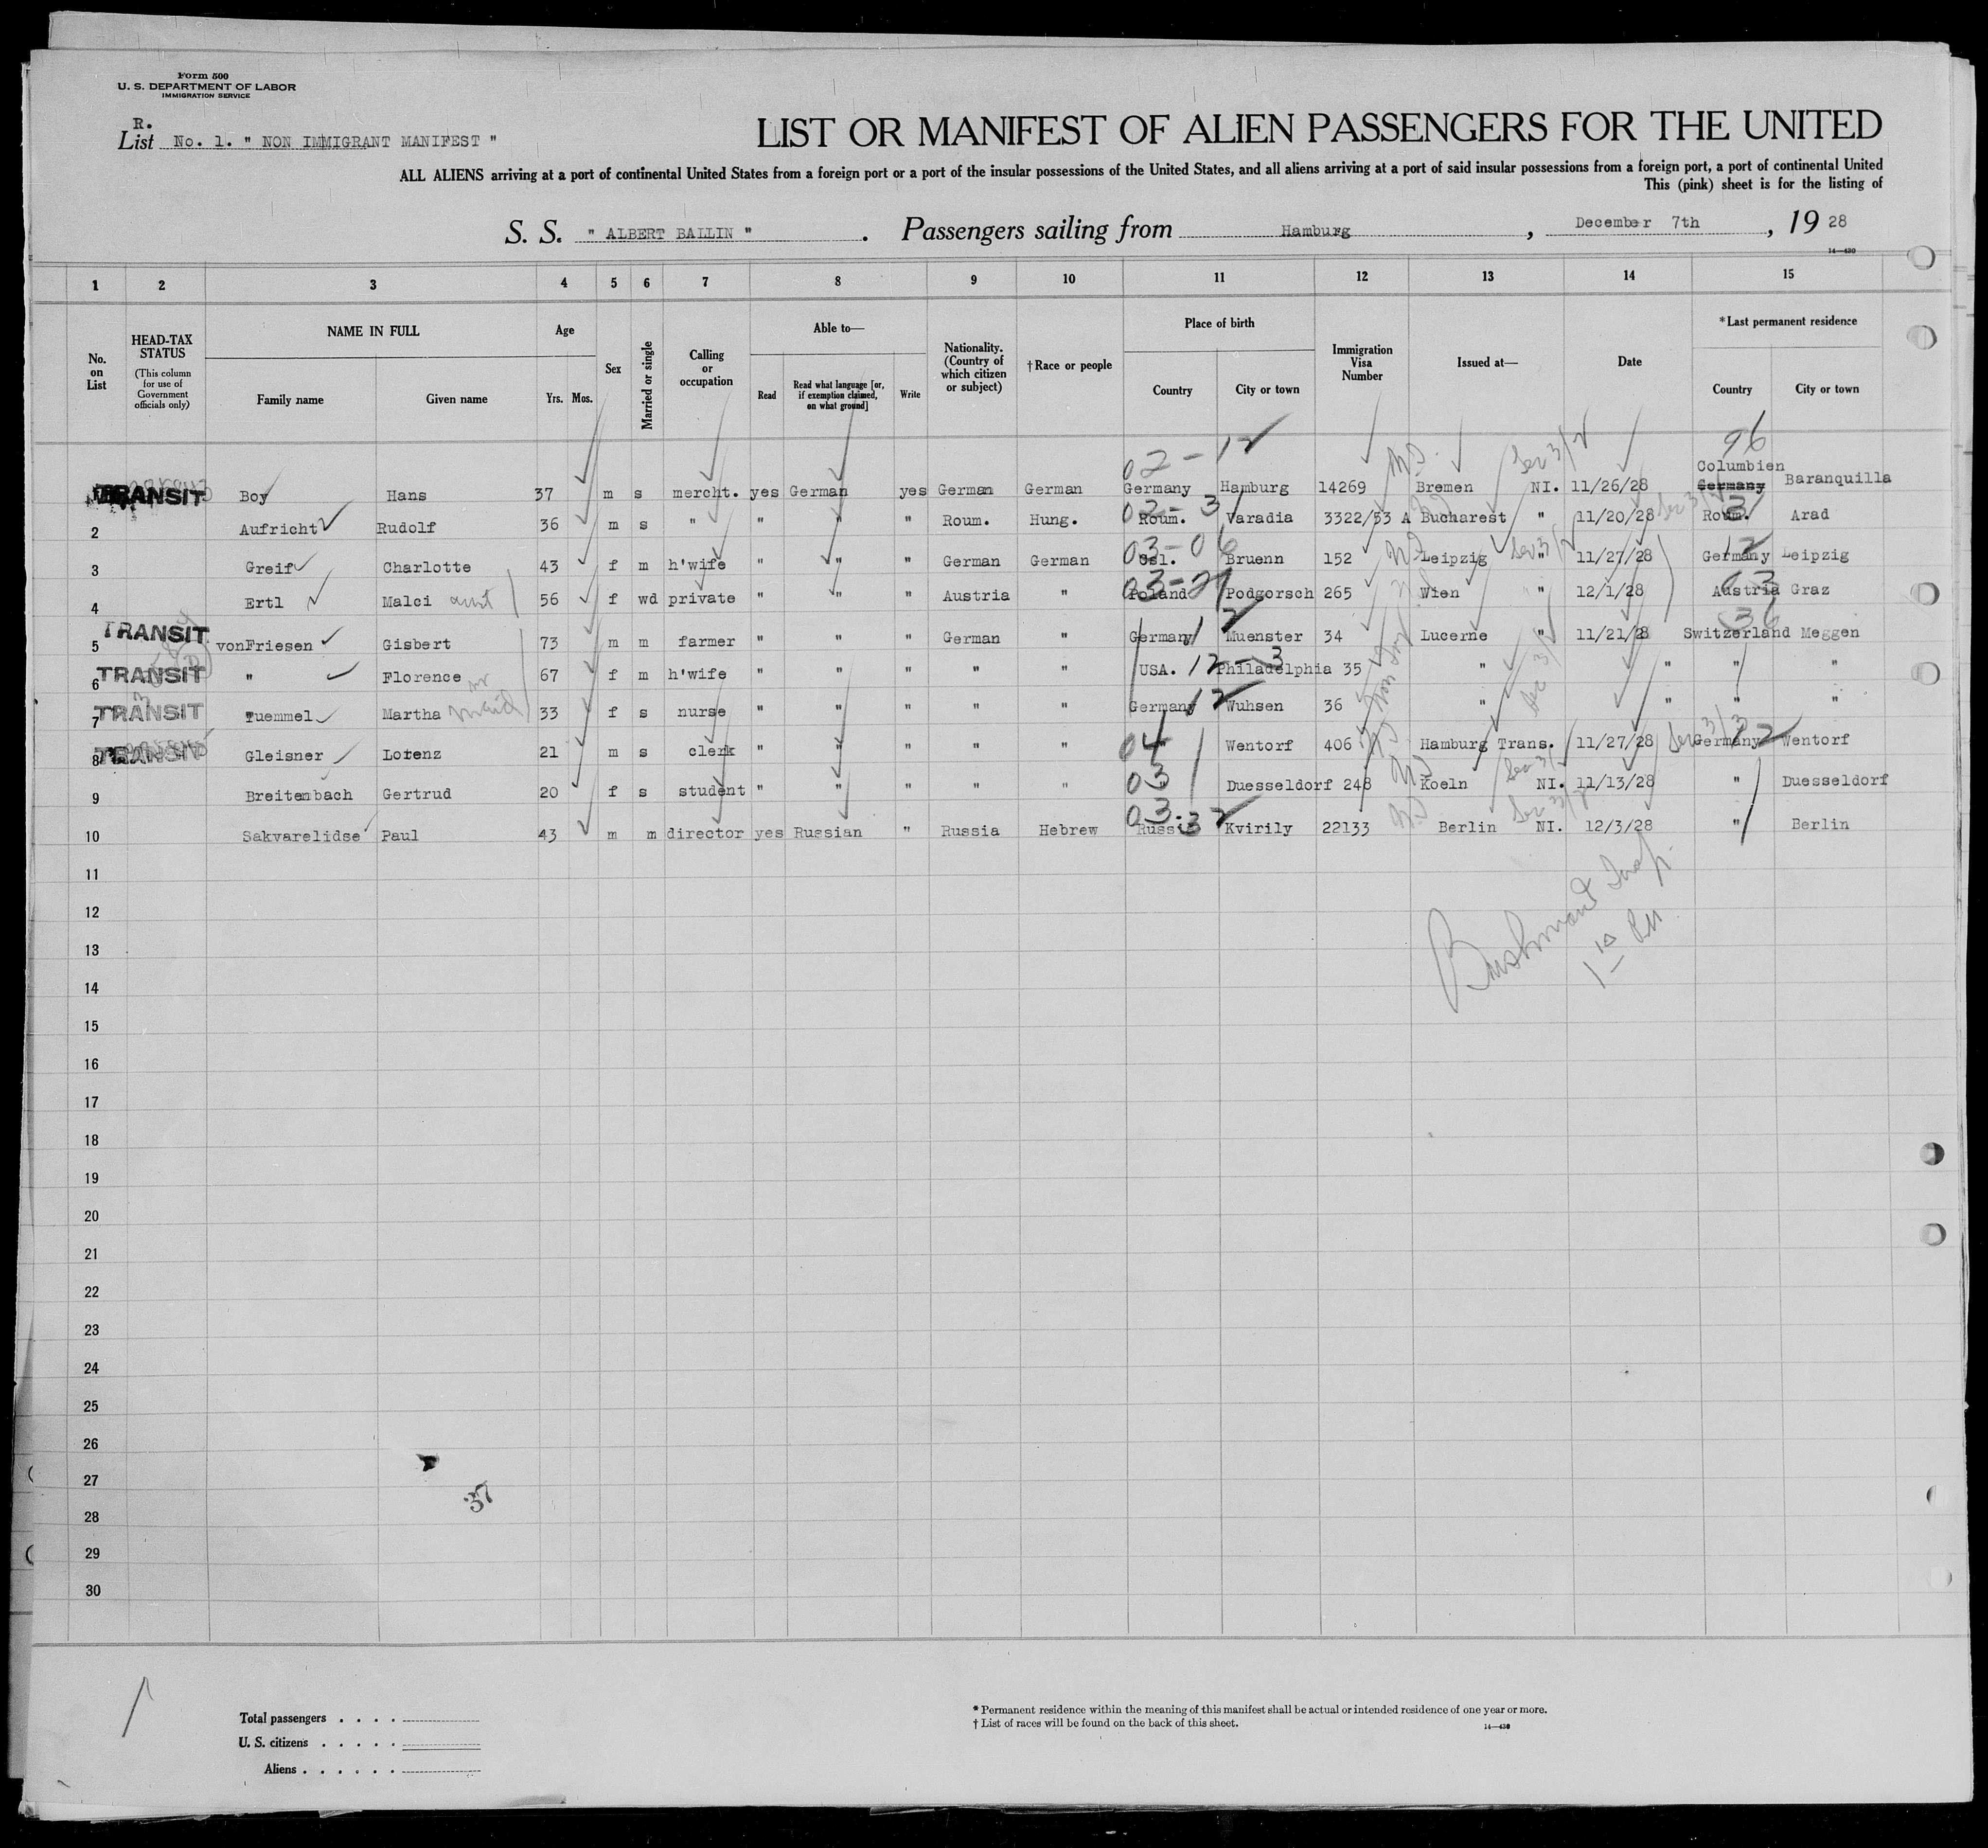 Form 500
U. S. DEPARTMENT OF LABOR
IMMIGRATION SERVICE
R.
List No. 1. " NON IMMIGRANT MANIFEST "
LIST OR MANIFEST OF ALIEN PASSENGERS FOR THE UNITED
ALL ALIENS arriving at a port of continental United States from a foreign port or a port of the insular possessions of the United States, and all aliens arriving at a port of said insular possessions from a foreign port, a port of continental United
This (pink) sheet is for the listing of
S. S. " ALBERT BALLIN " . Passengers sailing from Hamburg , December 7th , 19 28
14—430
1 2 3 4 5 6 7 8 9 10 11 12 13 14 15
No. on List
HEAD-TAX STATUS
(This column for use of Government officials only)
NAME IN FULL
Family name Given name
Age
Yrs. Mos.
Sex
Married or single
Calling or occupation
Able to—
Read
Read what language [or, if exemption claimed, on what ground]
Write
Nationality. (Country of which citizen or subject)
†Race or people
Place of birth
Country City or town
Immigration Visa Number
Issued at—
Date
*Last permanent residence
Country City or town
02-12 96
Columbien
TRANSIT Boy Hans 37 m s mercht. yes German yes German German Germany Hamburg 14269 Bremen NI. 11/26/28 Germany Baranquilla
2 Aufricht Rudolf 36 m s " " " " Roum. Hung. Roum. Varadia 3322/53 A Bucharest " 11/20/28 Roum. Arad
3 Greif Charlotte 43 f m h'wife " " " German German Csl. Bruenn 152 Leipzig " 11/27/28 Germany Leipzig
4 Ertl Malci aunt 56 f wd private " " " Austria " Poland Podgorsch 265 Wien " 12/1/28 Austria Graz
5 TRANSIT vonFriesen Gisbert 73 m m farmer " " " German " Germany Muenster 34 Lucerne " 11/21/28 Switzerland Meggen
6 TRANSIT " Florence 67 f m h'wife " " " " " USA. 12-3 Philadelphia 35 " " " "
7 TRANSIT Tuemmel Martha maid 33 f s nurse " " " " " Germany 12 Wuhsen 36 " " " "
8 TRANSIT Gleisner Lorenz 21 m s clerk " " " " " 04 Wentorf 406 Hamburg Trans. 11/27/28 Germany Wentorf
9 Breitenbach Gertrud 20 f s student " " " " " 03 Duesseldorf 248 Koeln NI. 11/13/28 " Duesseldorf
10 Sakvarelidse Paul 43 m m director yes Russian " Russia Hebrew Russia Kvirily 22133 Berlin NI. 12/3/28 " Berlin
11
12
13
14
15
16
17
18
19
20
21
22
23
24
25
26
27
28
29
30
37
Total passengers . . . .
U. S. citizens . . . . .
Aliens . . . . . .
* Permanent residence within the meaning of this manifest shall be actual or intended residence of one year or more.
† List of races will be found on the back of this sheet.
14—430